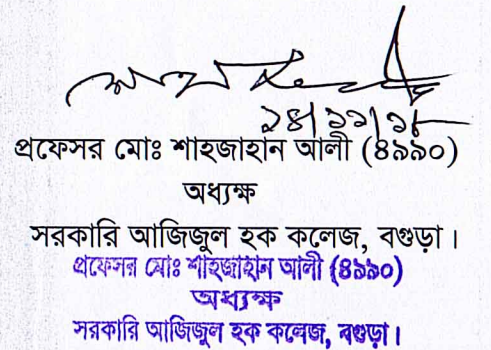 ২৪/১১/১৮
প্রফেসর মোঃ শাহজাহান আলী (৪৯৯০)
অধ্যক্ষ
সরকারি আজিজুল হক কলেজ, বগুড়া।
প্রফেসর মোঃ শাহজাহান আলী (৪৯৯০)
অধ্যক্ষ
সরকারি আজিজুল হক কলেজ, বগুড়া।